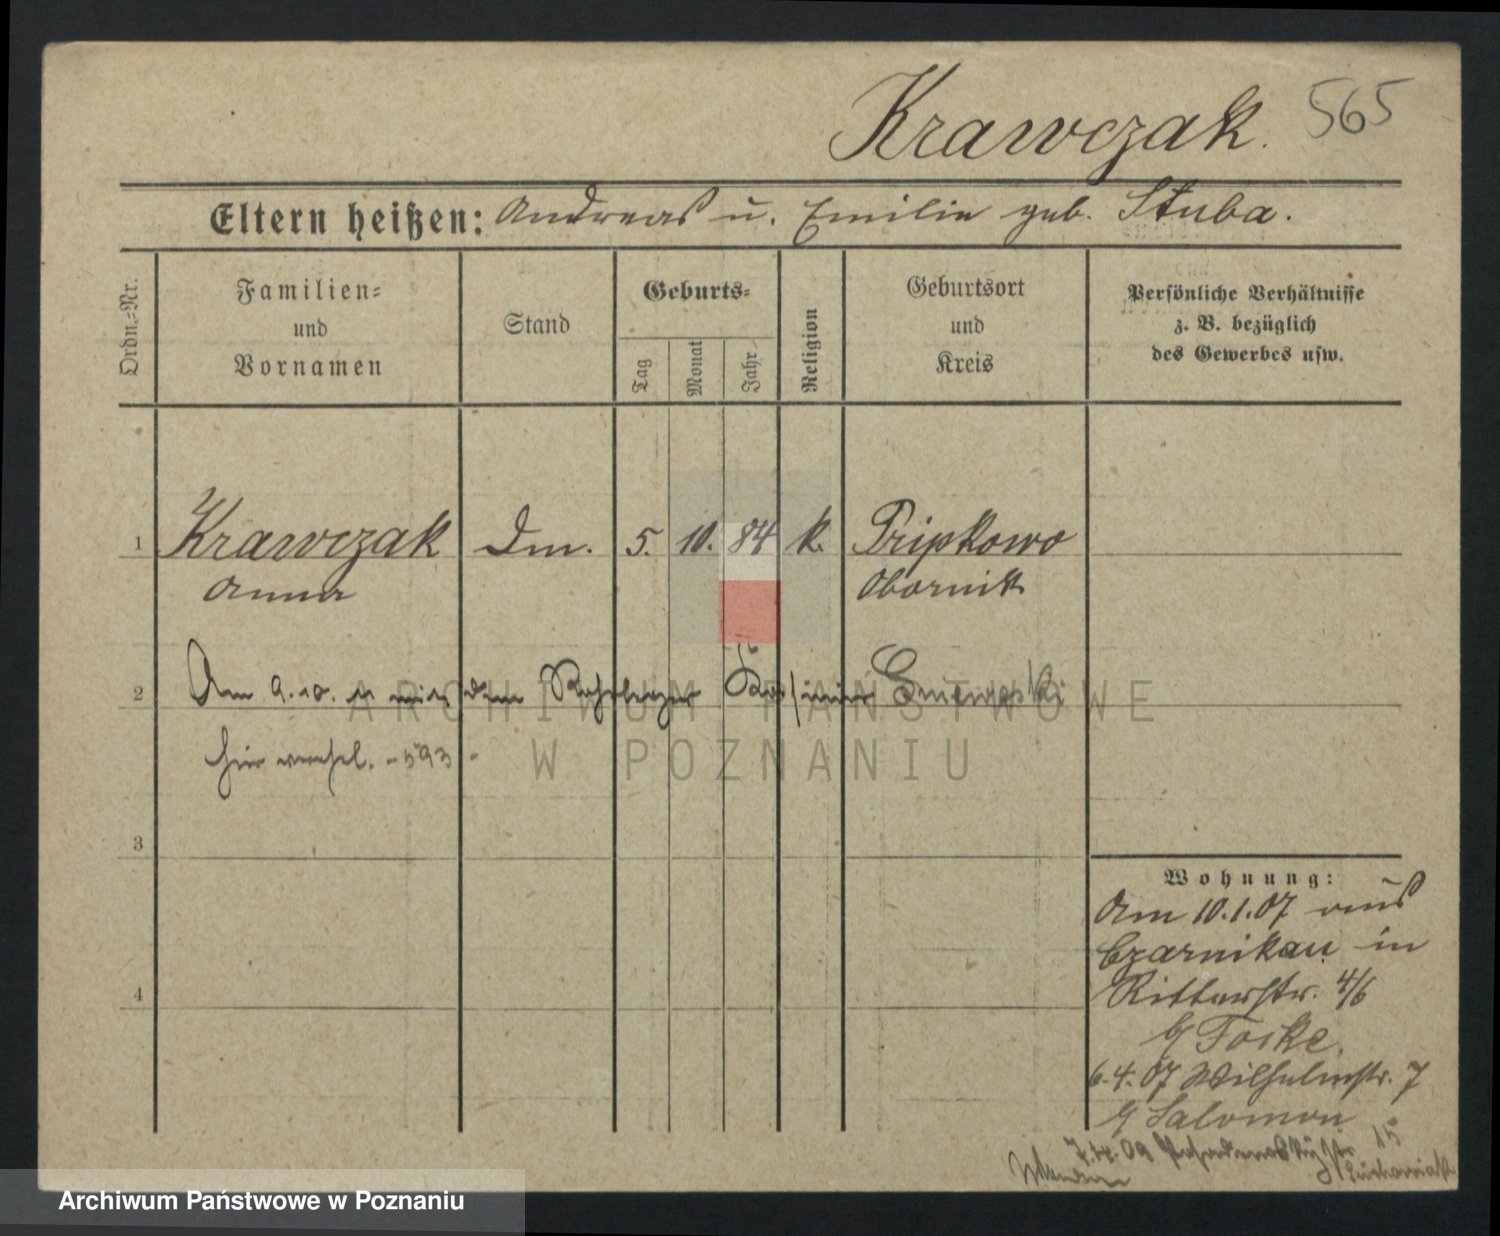 Krawczak. 565
Eltern heißen: Andreas u. Emilie geb. Stuba.
Ordn.-Nr.
Familien-
und
Vornamen
Stand
Geburts-
Tag
Monat
Jahr
Religion
Geburtsort
und
Kreis
Persönliche Verhältnisse
z. B. bezüglich
des Gewerbes usw.
1 Krawczak Dm. 5. 10. 84 k. Pripkowo
Anna Obornik
2 Am 9.10. 11 mit dem Kasimir
hier verehel. - 593 -
3
4
Wohnung:
Am 10.1.07 aus
Czarnikau in
Ritterstr. 4/6
b/ Foike.
6.4.07 Wilhelmstr. 7
b/ Salomon
7.4.09 15
ARCHIWUM PAŃSTWOWE
W POZNANIU
Archiwum Państwowe w Poznaniu